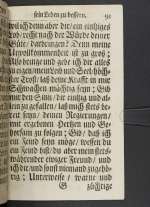 sein Leben zu bessern. 91
wol ich denn aber dir/ ein einiges
Lob/ recht nach der Würde deiner
Güte/ darbringen? Denn meine
Unvollkommenheit ist zu groß;
Also bringe und gebe ich dir alles
zu eigen/ mein Leib und Seel höch-
ster Trost/ laß deine Krafft in mir
Schwachen mächtig seyn; Gib
mir den Sinn/ dir einzig und al-
lein zu gefallen/ laß mich stets be-
reit seyn/ deinen Regierungen/
mit ergebenen Hertzen und Ge-
horsam zu folgen; Gib/ daß ich
ein Feind seyn möge/ wessen du
Feind bist/ du aber mein stets-
währender ewiger Freund/ und
ich dir und sonst niemand zugehö-
rig; Unterweise/ warne und
G züchtige